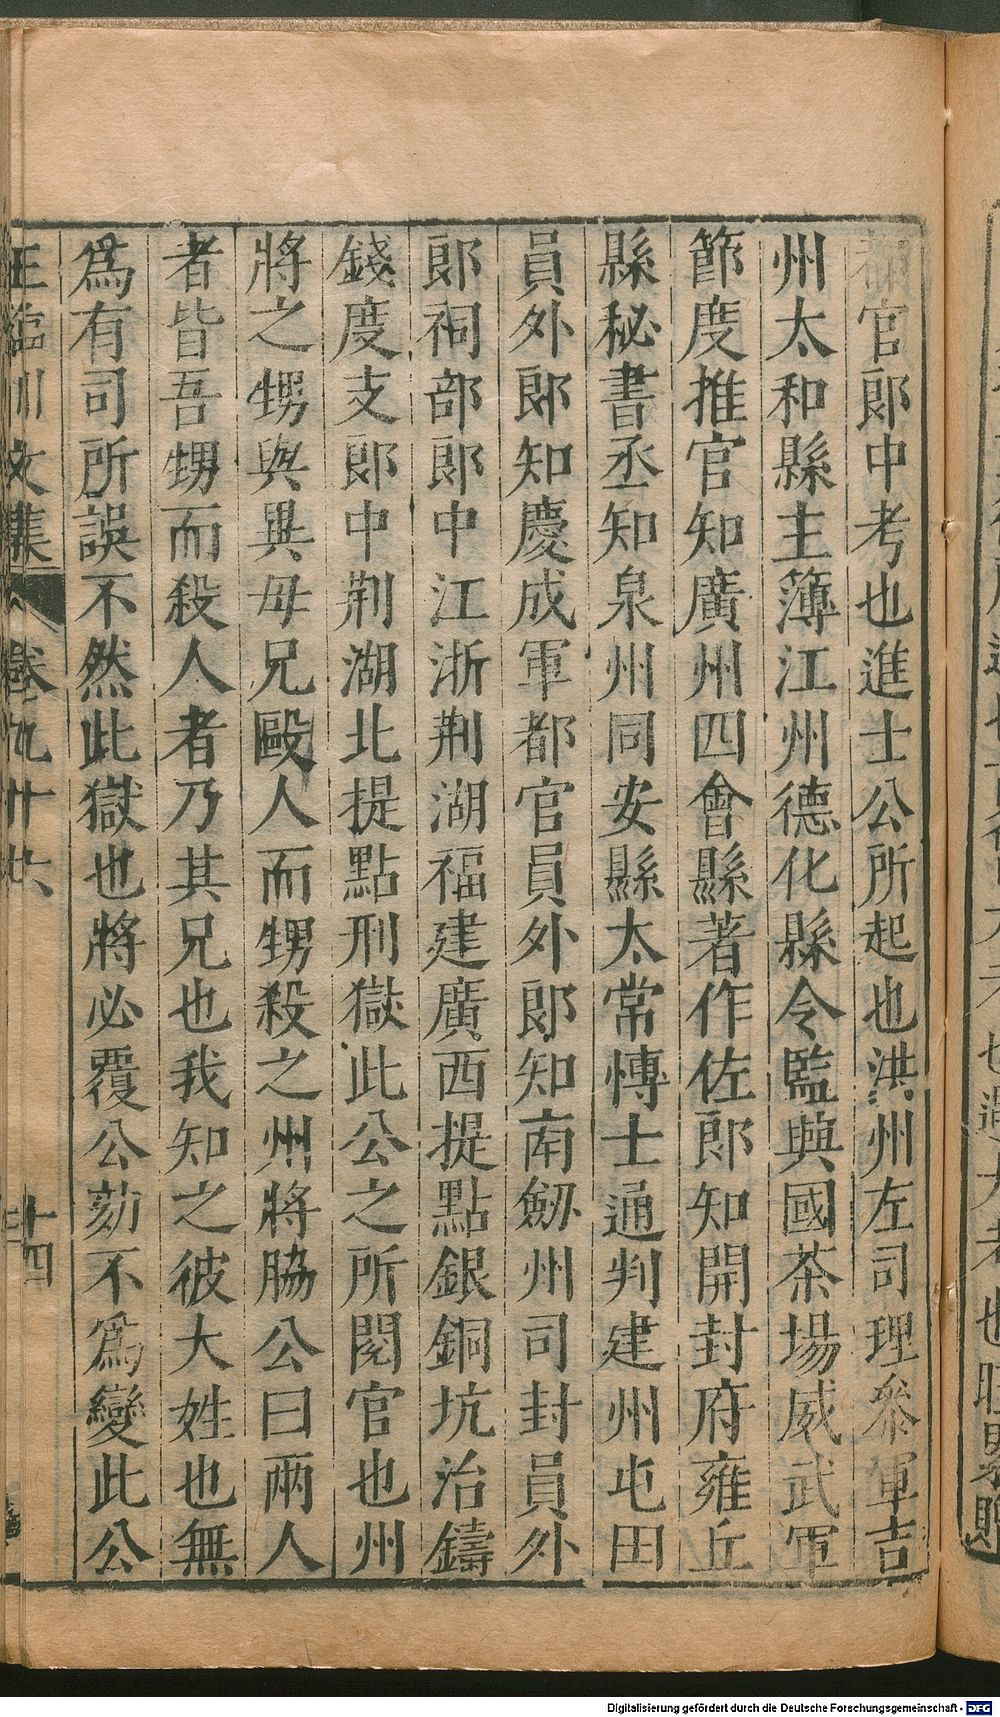 都官郎中考也進士公所起也洪州左司理參軍吉
州太和縣主簿江州德化縣令監興國茶場威武軍
節度推官知廣州四會縣著作佐郎知開封府雍丘
縣秘書丞知泉州同安縣太常愽士通判建州屯田
員外郎知慶成軍都官員外郎知南劔州司封員外
郎祠部郎中江浙荆湖福建廣西提點銀銅坑治鑄
錢度支郎中荆湖北提點刑獄此公之所閱官也州
將之甥與異母兄毆人而甥殺之州將脇公曰兩人
者皆吾甥而殺人者乃其兄也我知之彼大姓也無
爲有司所誤不然此獄也將必覆公劾不爲變此公
王臨川文集 卷九十六 十四
Digitalisierung gefördert durch die Deutsche Forschungsgemeinschaft - DFG